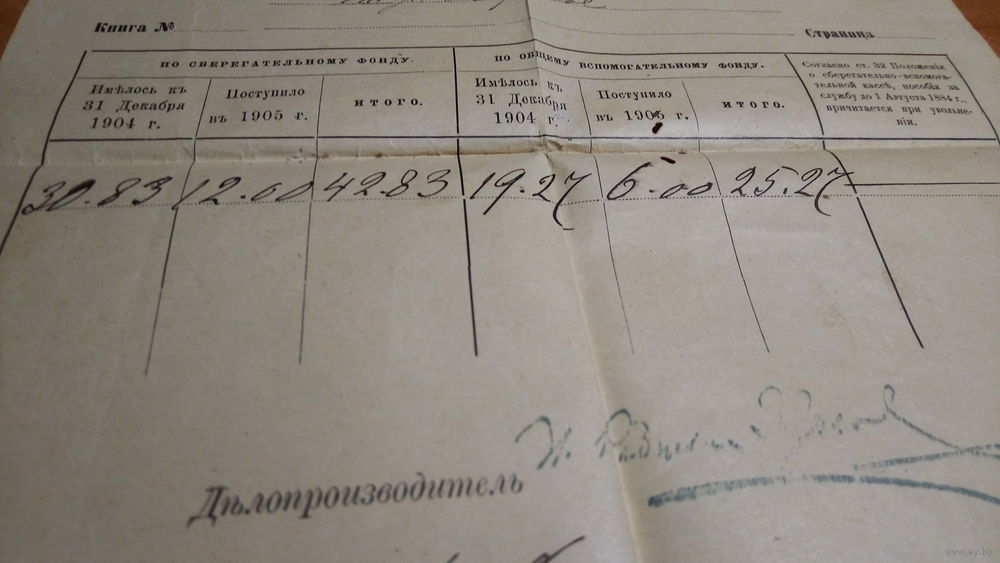 Книга № Страница
ПО СБЕРЕГАТЕЛЬНОМУ ФОНДУ.
Имѣлось къ
31 Декабря
1904 г.
Поступило
въ 1905 г.
ИТОГО.
ПО ОБЩЕМУ ВСПОМОГАТЕЛЬНОМУ ФОНДУ.
Имѣлось къ
31 Декабря
1904 г.
Поступило
въ 1905 г.
ИТОГО.
Согласно ст. 32 Положенія
о сберегательно-вспомога-
тельной кассѣ, пособія за
службу до 1 Августа 1884 г.,
причитается при увольне-
ніи.
30.83 12.00 42.83 19.27 6.00 25.27
Дѣлопроизводитель
www.ay.by